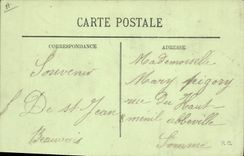 CARTE POSTALE
CORRESPONDANCE
Souvenir
De St Jean
Beauvois
ADRESSE
Mademoiselle
Mary
rue Du Haut
menil abbeville
Somme